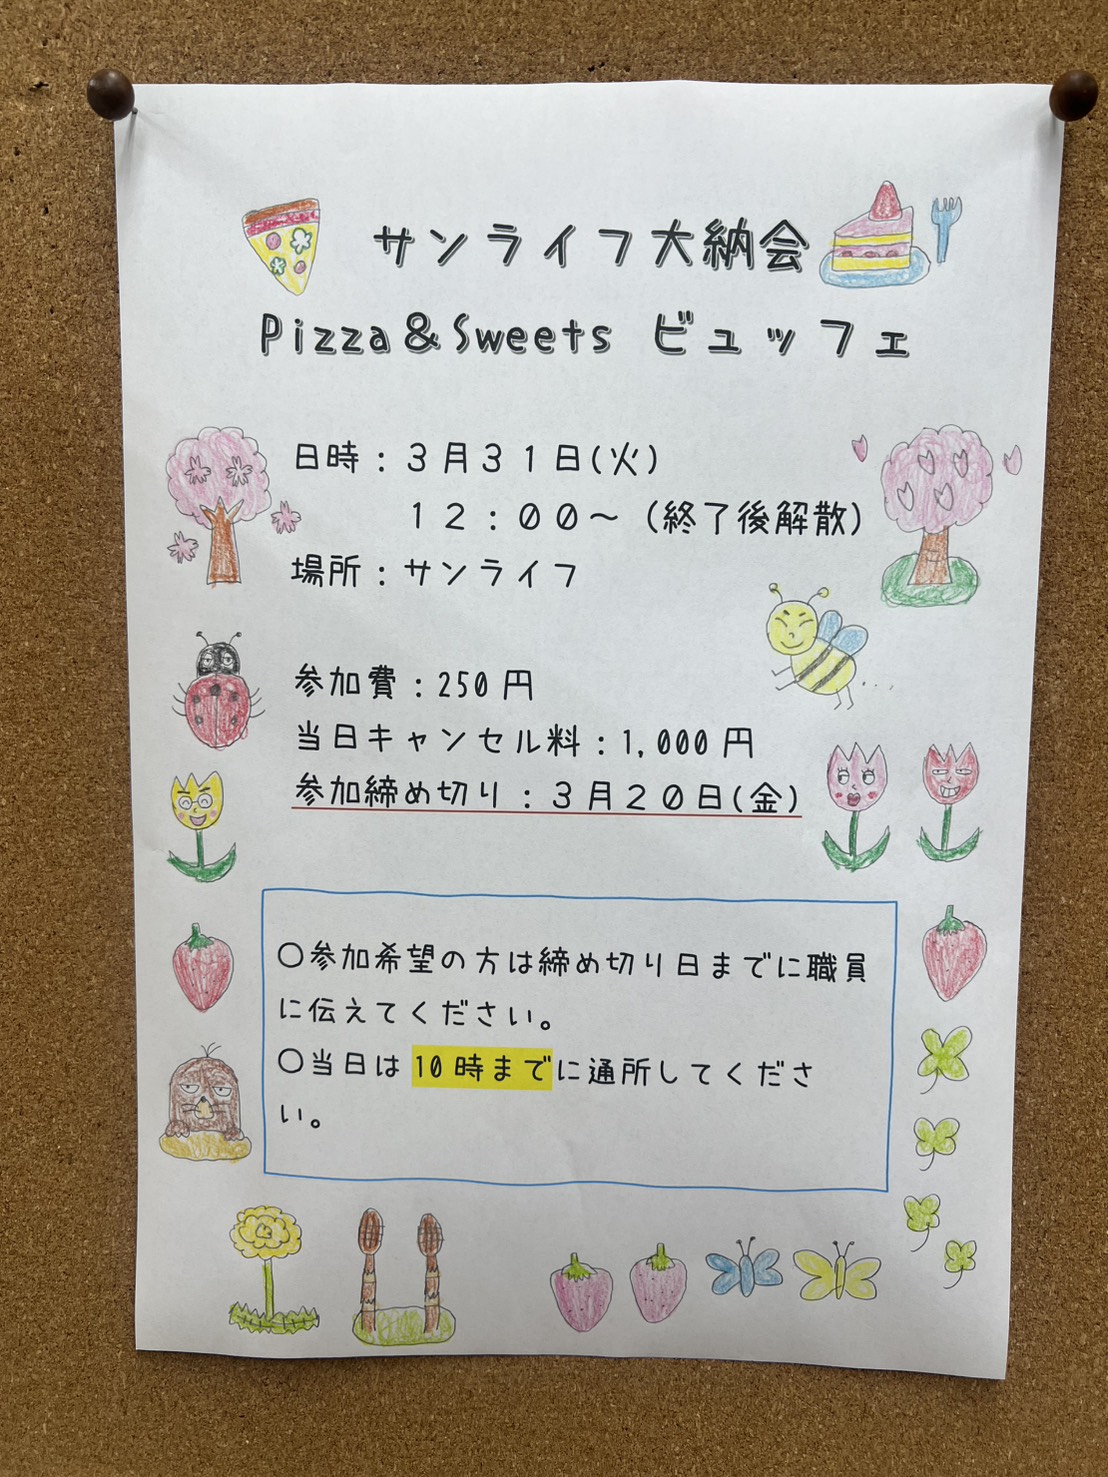 サンライフ大納会
Pizza&Sweets ビュッフェ
日時：３月３１日(火)
１２：００～（終了後解散）
場所：サンライフ
参加費：250円
当日キャンセル料：1,000円
参加締め切り：３月２０日(金)
〇参加希望の方は締め切り日までに職員
に伝えてください。
〇当日は10時までに通所してくださ
い。